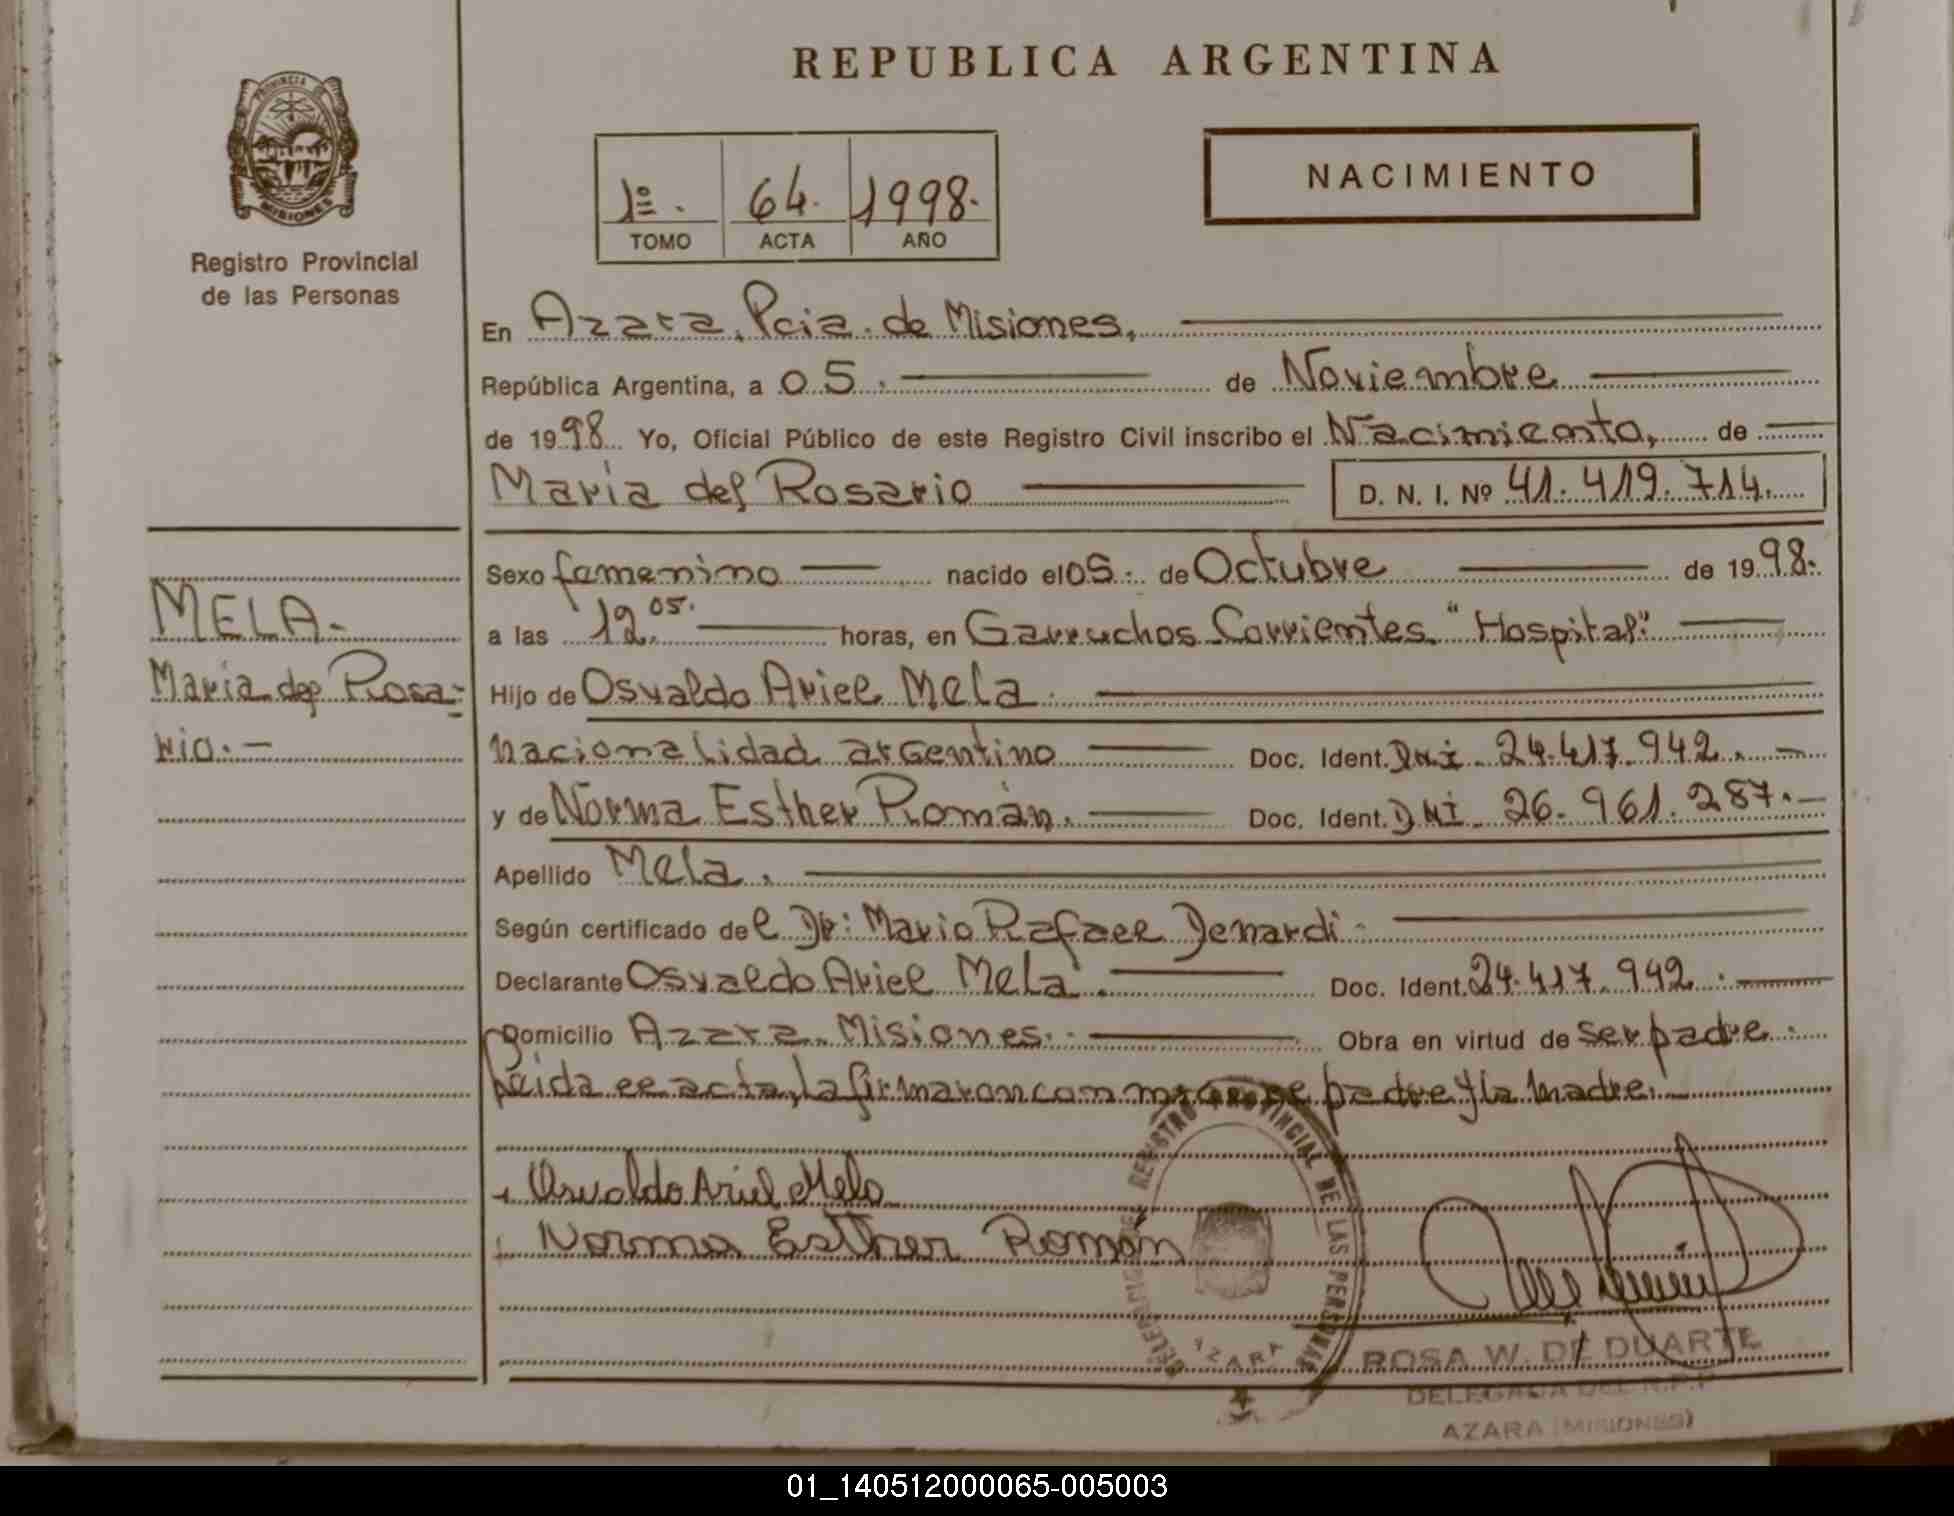 REPUBLICA ARGENTINA
PROVINCIA DE
MISIONES
Registro Provincial
de las Personas
1º. 64. 1998.
TOMO ACTA AÑO
NACIMIENTO
En Azara, Pcia. de Misiones,
República Argentina, a 05. de Noviembre
de 1998 Yo, Oficial Público de este Registro Civil inscribo el Nacimiento, de
María del Rosario D. N. I. Nº 41.419.714.
MELA.-
María del Rosa-
rio.-
Sexo femenino nacido el 05. de Octubre de 1998.
a las 12,05. horas, en Garruchos Corrientes "Hospital"
Hijo de Osvaldo Ariel Mela.
nacionalidad argentino Doc. Ident. DNI. 24.417.942.-
y de Norma Esther Román. Doc. Ident. DNI. 26.961.287.-
Apellido Mela.
Según certificado del Dr: Mario Rafael Denardi.
Declarante Osvaldo Ariel Mela. Doc. Ident. 24.417.942.
Domicilio Azara. Misiones. Obra en virtud de ser padre.
Leida el acta, la firmaron con el padre y la madre.
Osvaldo Ariel Mela
Norma Esther Román
REGISTRO PROVINCIAL DE LAS PERSONAS
AZARA
ROSA W. DE DUARTE
DELEGADA DEL R.P.P
AZARA (MISIONES)
01_140512000065-005003